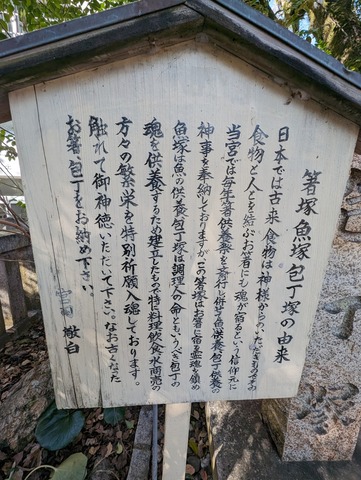 箸塚魚塚包丁塚の由来
日本では古来食物は神様からのいただきものです
食物と人とを結ぶお箸にも魂が宿るという信仰元に
当宮では毎年箸供養祭を斎行し併せて魚供養包丁供養の
神事を奉納しておりますがこの箸塚はお箸に宿る霊魂を鎮め
魚塚は魚の供養包丁塚は調理人の命ともいうべき包丁の
魂を供養するため建立したもの特に料理飲食水商売の
方々の繁栄を特別祈願入魂しております。
触れて御神徳いただいて下さい。なお古くなった
お箸、包丁をお納め下さい。
敬白